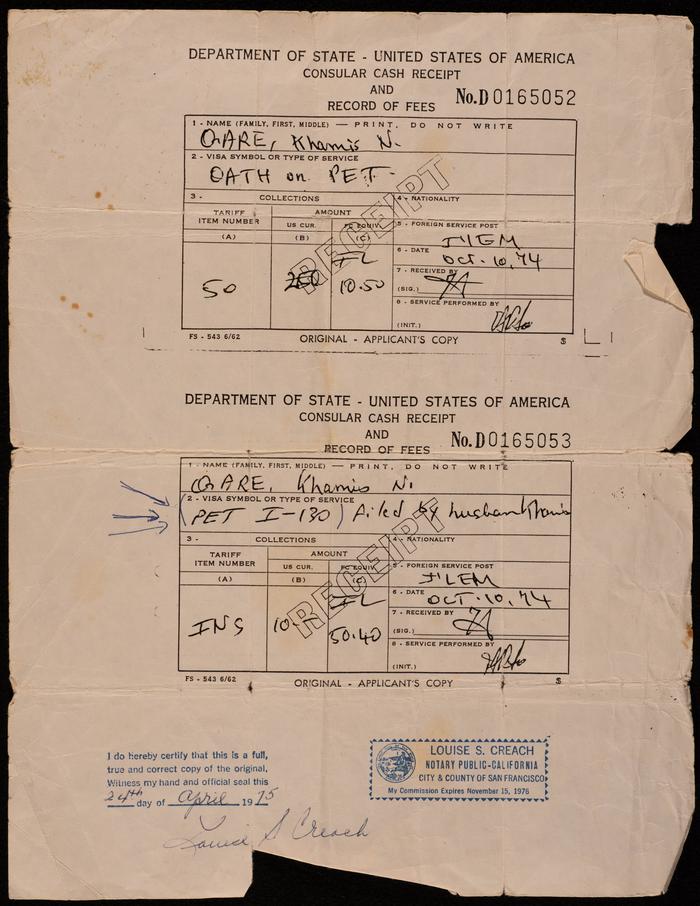 DEPARTMENT OF STATE - UNITED STATES OF AMERICA
CONSULAR CASH RECEIPT
AND
RECORD OF FEES
No. D 0165052
1 - NAME (FAMILY, FIRST, MIDDLE) — PRINT, DO NOT WRITE
QARE, Khamis N.
2 - VISA SYMBOL OR TYPE OF SERVICE
OATH on PET.
3 - COLLECTIONS
4 - NATIONALITY
TARIFF ITEM NUMBER
AMOUNT
US CUR.
FC EQUIV.
5 - FOREIGN SERVICE POST
J'LEM
(A) (B) (C)
RECEIPT
IL
6 - DATE OCT. 10, 74
50
10.50
7 - RECEIVED BY
(SIG.)
8 - SERVICE PERFORMED BY
(INIT.)
FS - 543 6/62
ORIGINAL - APPLICANT'S COPY
$
DEPARTMENT OF STATE - UNITED STATES OF AMERICA
CONSULAR CASH RECEIPT
AND
RECORD OF FEES
No. D 0165053
1 - NAME (FAMILY, FIRST, MIDDLE) — PRINT, DO NOT WRITE
QARE, Khamis N.
2 - VISA SYMBOL OR TYPE OF SERVICE
(PET I-130) Filed by husban Khamis
3 - COLLECTIONS
4 - NATIONALITY
TARIFF ITEM NUMBER
AMOUNT
US CUR.
FC EQUIV.
5 - FOREIGN SERVICE POST
J'LEM
(A) (B) (C)
RECEIPT
IL
6 - DATE OCT. 10, 74
INS
10.-
50.40
7 - RECEIVED BY
(SIG.)
8 - SERVICE PERFORMED BY
(INIT.)
FS - 543 6/62
ORIGINAL - APPLICANT'S COPY
$
I do hereby certify that this is a full,
true and correct copy of the original.
Witness my hand and official seal this
24th day of April 1975
Louise S Creach
LOUISE S. CREACH
NOTARY PUBLIC-CALIFORNIA
CITY & COUNTY OF SAN FRANCISCO
My Commission Expires November 15, 1976